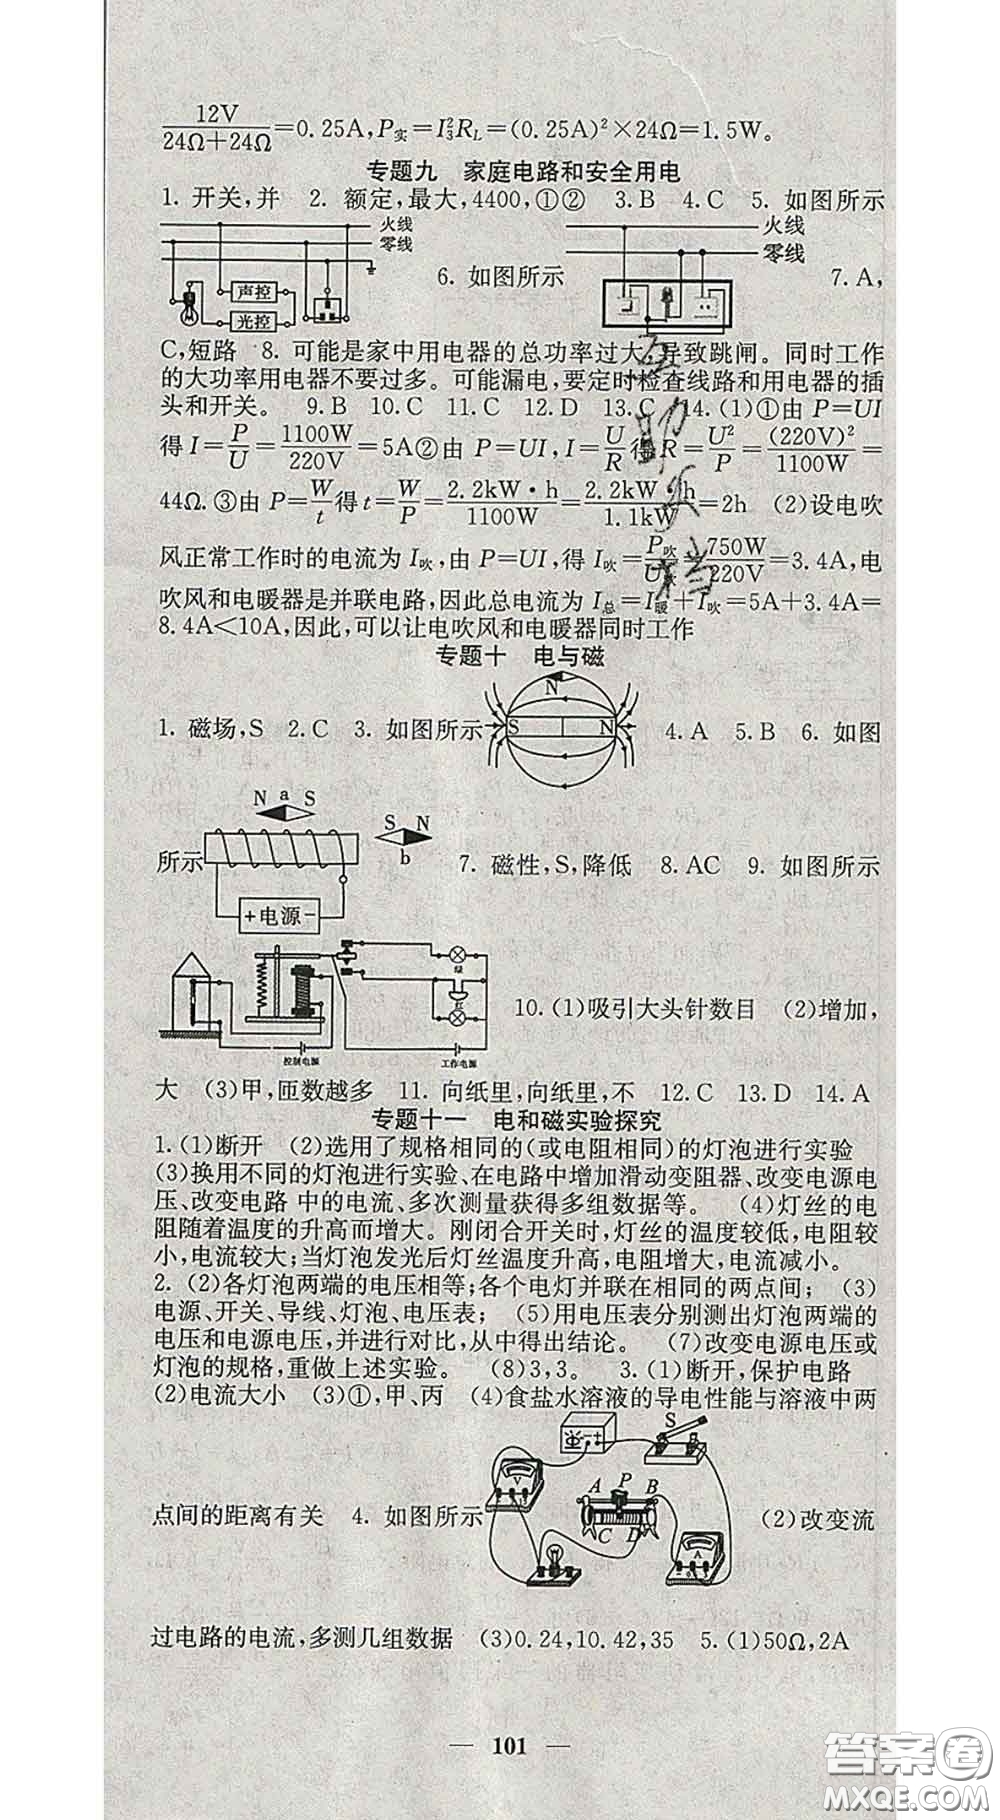 12V/(24Ω+24Ω)=0.25A,P实=I₃²R_L=(0.25A)²×24Ω=1.5W。
专题九 家庭电路和安全用电
1. 开关,并 2. 额定,最大,4400,①② 3.B 4.C 5. 如图所示
火线 零线 声控 光控 6. 如图所示 火线 零线 7.A,
C,短路 8. 可能是家中用电器的总功率过大,导致跳闸。同时工作
的大功率用电器不要过多。可能漏电,要定时检查线路和用电器的插
头和开关。 9.B 10.C 11.C 12.D 13.C 14.(1)①由 P=UI
得 I=P/U=1100W/220V=5A②由 P=UI,I=U/R得 R=U²/P=(220V)²/1100W=
44Ω.③由 P=W/t得 t=W/P=2.2kW·h/1100W=2.2kW·h/1.1kW=2h (2)设电吹
风正常工作时的电流为 I吹,由 P=UI,得 I吹=P吹/U吹=750W/220V=3.4A,电
吹风和电暖器是并联电路,因此总电流为 I总=I暖+I吹=5A+3.4A=
8.4A<10A,因此,可以让电吹风和电暖器同时工作
专题十 电与磁
1. 磁场,S 2.C 3. 如图所示 N S N 4.A 5.B 6. 如图
N a S S N b
所示 +电源- 7. 磁性,S,降低 8.AC 9. 如图所示
绿 红 控制电源 工作电源 10.(1)吸引大头针数目 (2)增加,
大 (3)甲,匝数越多 11. 向纸里,向纸里,不 12.C 13.D 14.A
专题十一 电和磁实验探究
1.(1)断开 (2)选用了规格相同的(或电阻相同)的灯泡进行实验
(3)换用不同的灯泡进行实验、在电路中增加滑动变阻器、改变电源电
压、改变电路 中的电流、多次测量获得多组数据等。 (4)灯丝的电
阻随着温度的升高而增大。刚闭合开关时,灯丝的温度较低,电阻较
小,电流较大;当灯泡发光后灯丝温度升高,电阻增大,电流减小。
2. (2)各灯泡两端的电压相等;各个电灯并联在相同的两点间; (3)
电源、开关、导线、灯泡、电压表; (5)用电压表分别测出灯泡两端的
电压和电源电压,并进行对比,从中得出结论。 (7)改变电源电压或
灯泡的规格,重做上述实验。 (8)3,3。 3.(1)断开,保护电路
(2)电流大小 (3)①,甲、丙 (4)食盐水溶液的导电性能与溶液中两
点间的距离有关 4. 如图所示 S V A P B C D A (2)改变流
过电路的电流,多测几组数据 (3)0.24,10.42,35 5.(1)50Ω,2A
— 101 —
答案圈
MXQE.COM